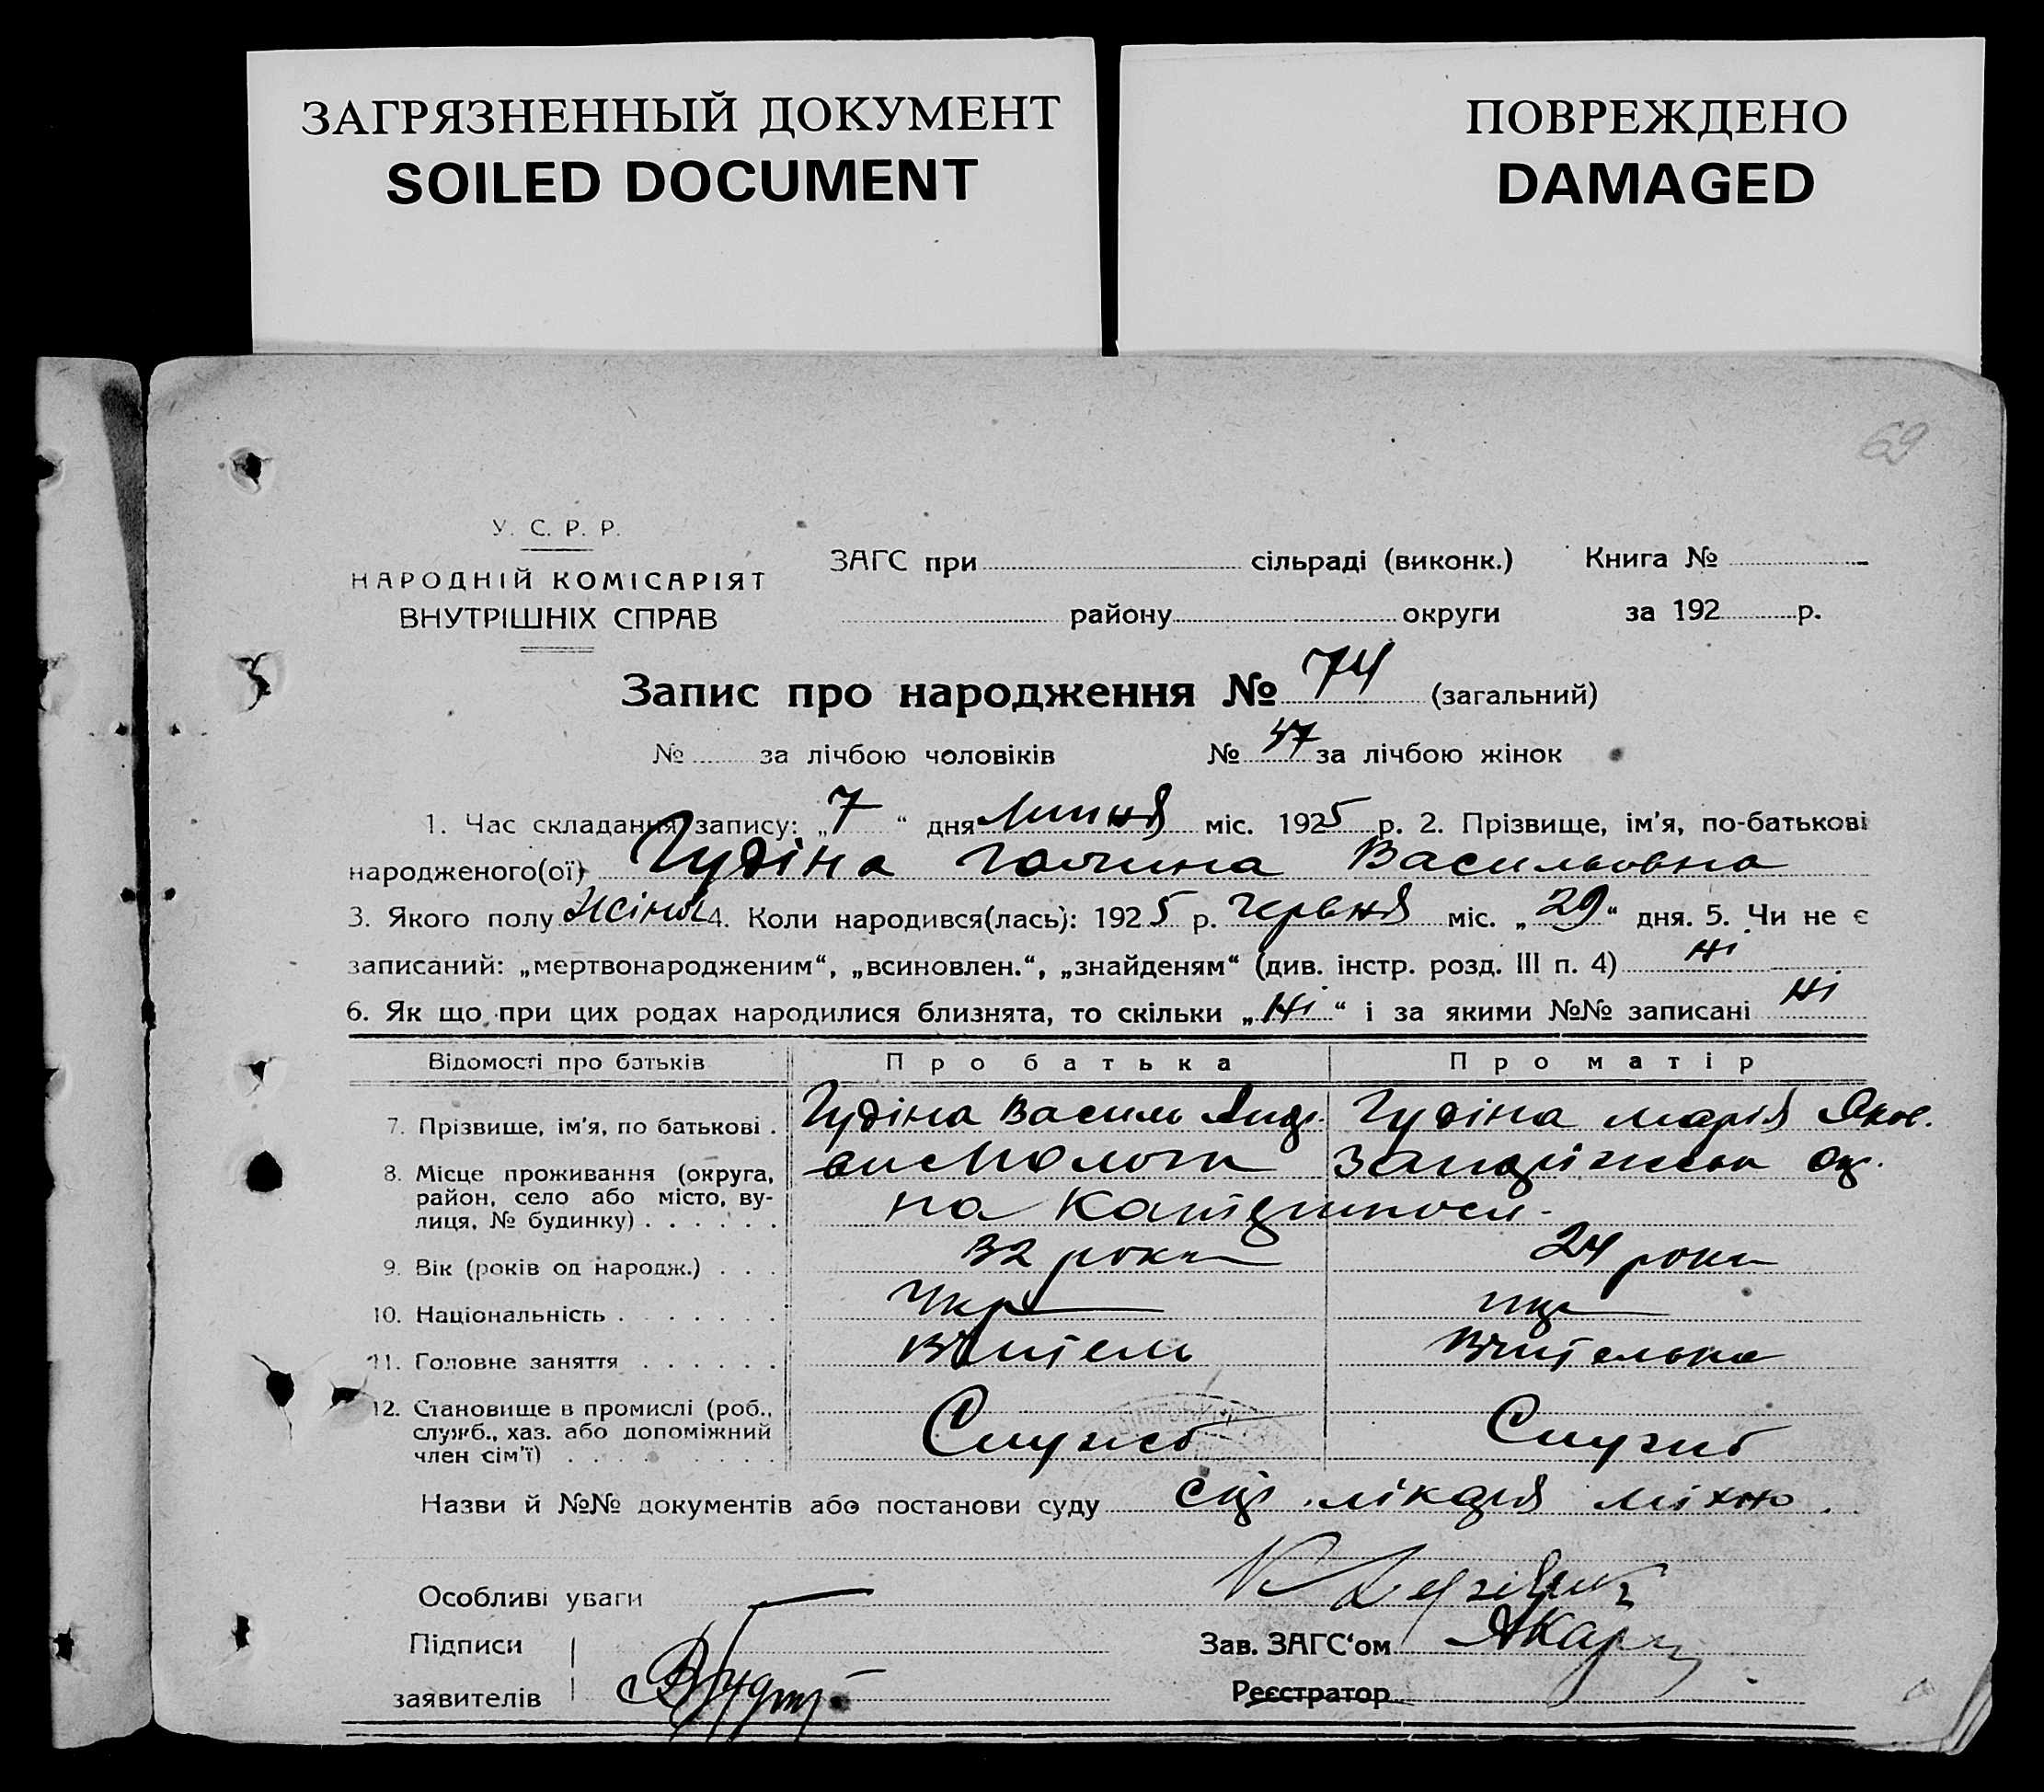 ЗАГРЯЗНЕННЫЙ ДОКУМЕНТ
SOILED DOCUMENT
ПОВРЕЖДЕНО
DAMAGED
69
У. С. Р. Р.
НАРОДНІЙ КОМІСАРІЯТ
ВНУТРІШНІХ СПРАВ
ЗАГС при сільраді (виконк.) Книга №
району округи за 192 р.
Запис про народження № 74 (загальний)
№ за лічбою чоловіків № 37 за лічбою жінок
1. Час складання запису: „7“ дня липня міс. 1925 р. 2. Прізвище, ім'я, по-батькові
народженого(ої) Гудіна Галина Васильовна
3. Якого полу жіноч 4. Коли народився(лась): 1925 р. червня міс. „29“ дня. 5. Чи не є
записаний: „мертвонародженим“, „всиновлен.“, „знайденям“ (див. інстр. розд. III п. 4) ні
6. Як що при цих родах народилися близнята, то скільки „ні“ і за якими №№ записані ні
Відомості про батьків Про батька Про матір
7. Прізвище, ім'я, по батькові . Гудіна Василь Андр. Гудіна Марія Яков.
8. Місце проживання (округа, Запоріжськ Ок.
район, село або місто, ву-
лиця, № будинку) . . . . . . на
9. Вік (років од народж.) . . . 32 роки 24 роки
10. Національність . . . . . . . Укр укр
11. Головне заняття . . . . . . Вчитель Вчителька
12. Становище в промислі (роб.,
служб., хаз. або допоміжний Служб Служб
член сім'ї) . . . . . . . . .
Назви й №№ документів або постанови суду лікаря
Особливі уваги
Підписи Зав. ЗАГС'ом
заявителів Реєстратор